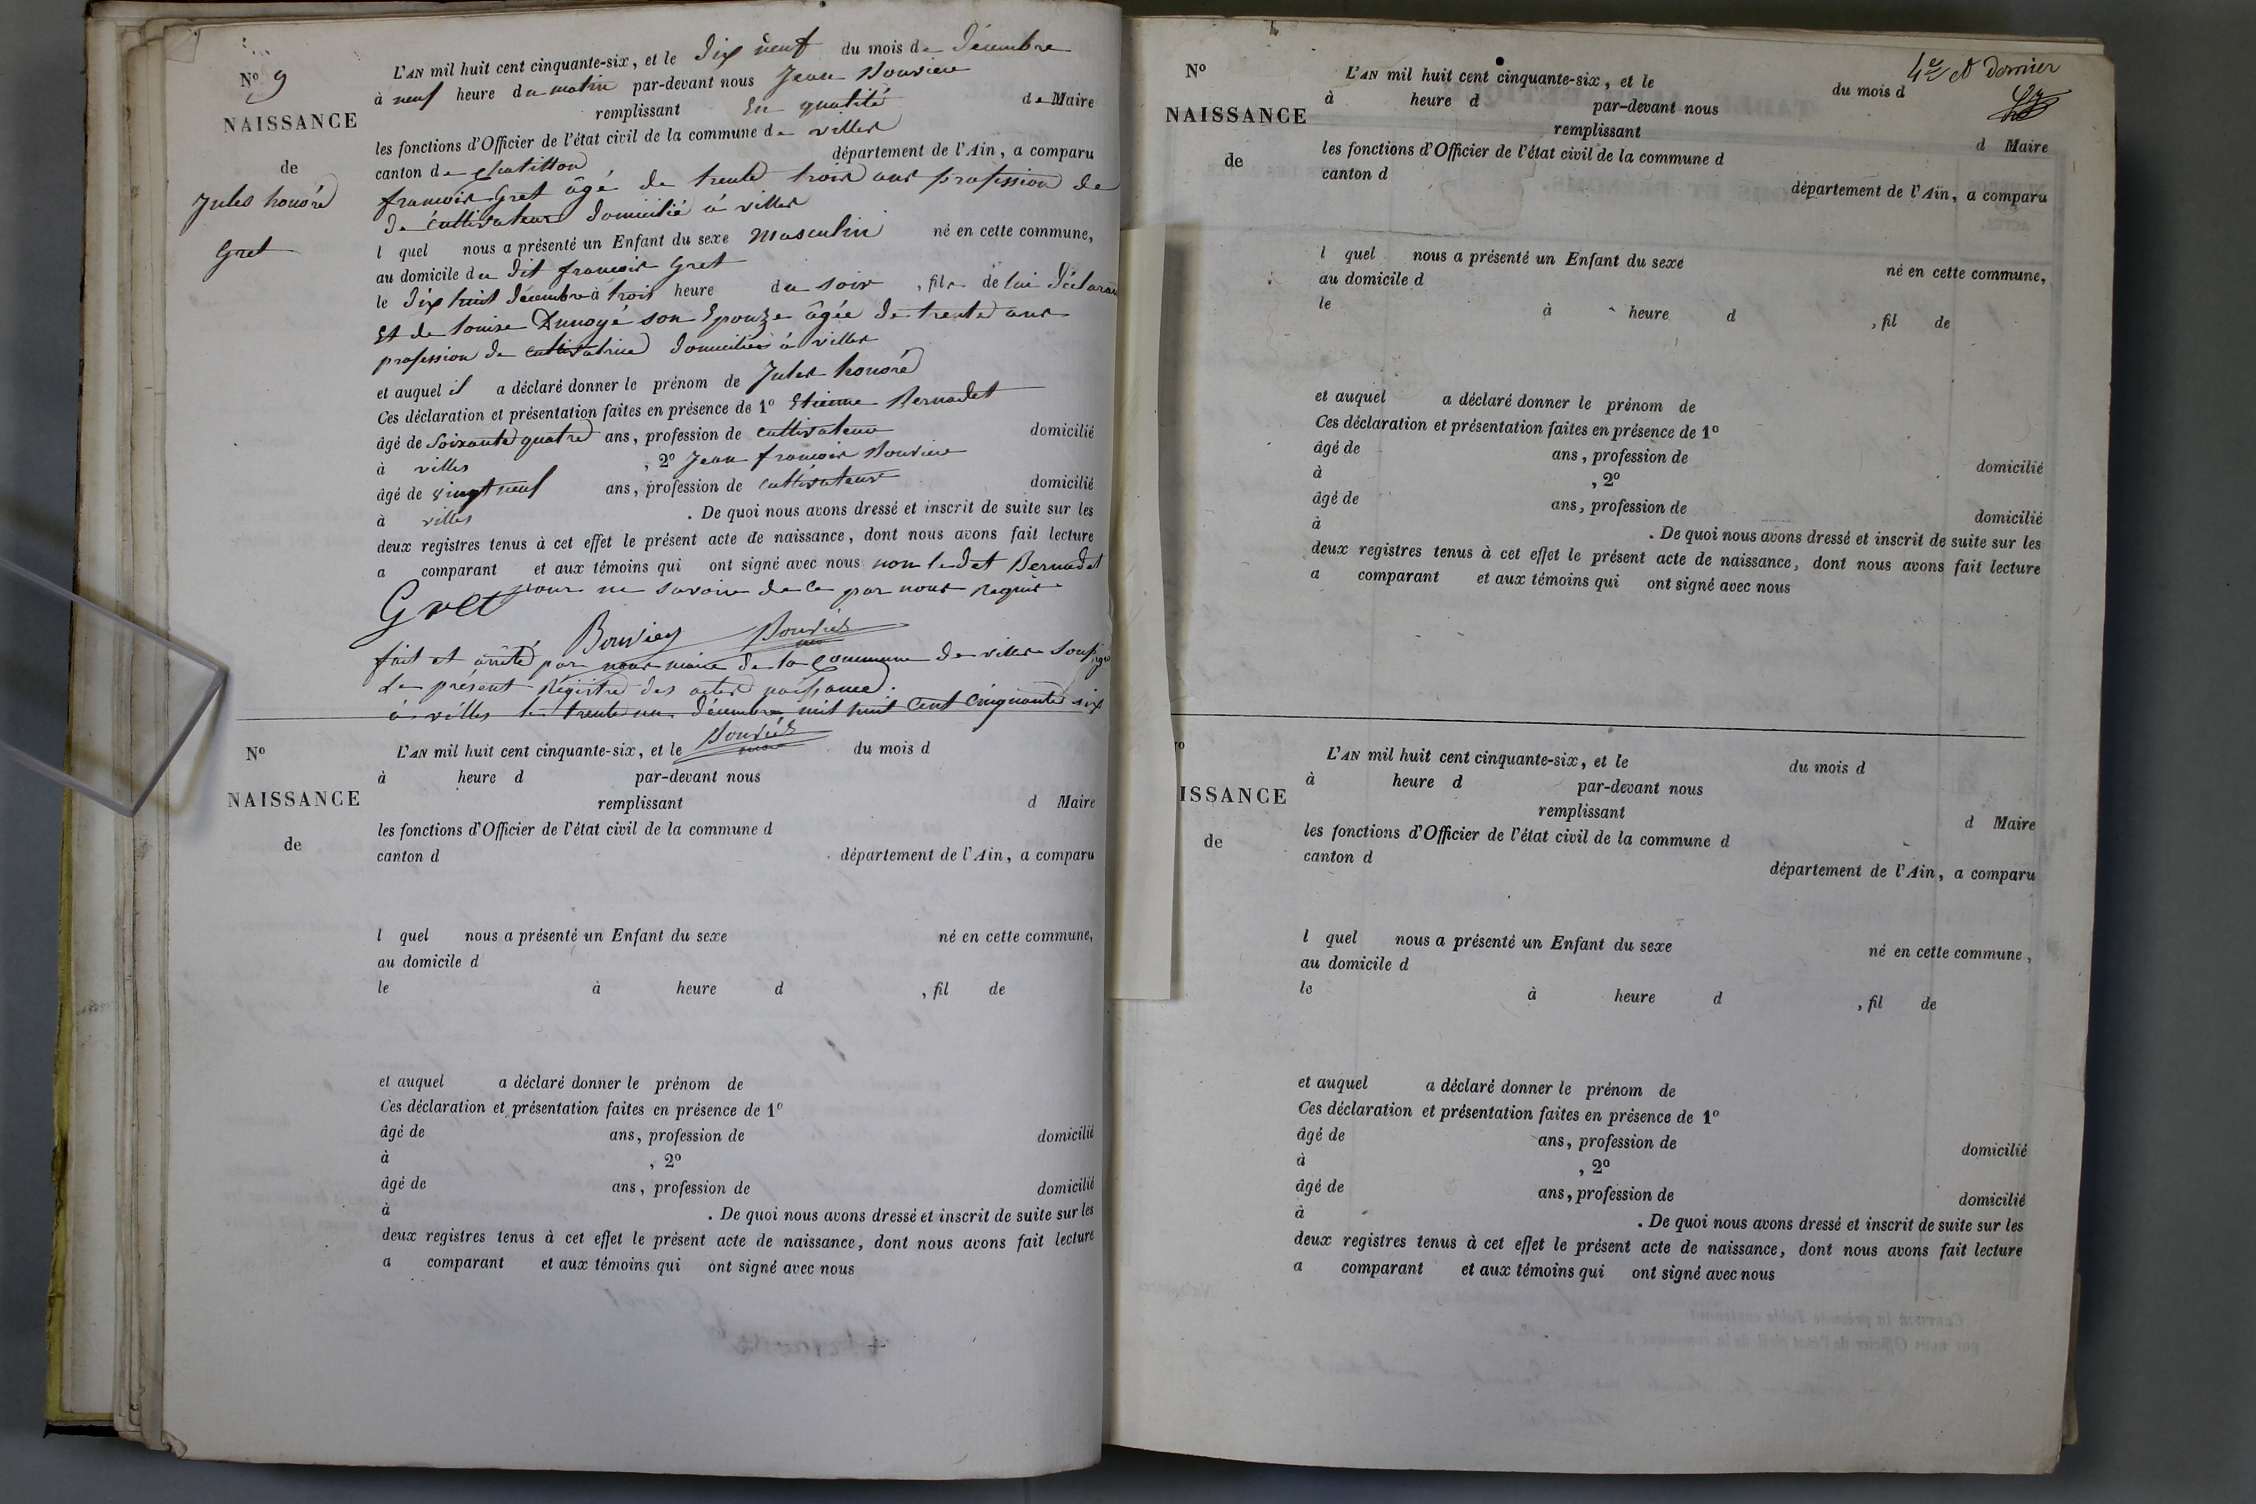 N° 9
NAISSANCE
de
Jules honoré
Gret
L'AN mil huit cent cinquante-six, et le dix neuf du mois de décembre
à neuf heure du matin par-devant nous Jean Bouvier
remplissant En qualité de Maire
les fonctions d'Officier de l'état civil de la commune de villes
canton de chatillon département de l'Ain, a comparu
francois Gret âgé de trente trois ans profession de
de cultivateur domicilié à villes
l quel nous a présenté un Enfant du sexe masculin né en cette commune,
au domicile du dit francois Gret
le dix huit décembre à trois heure du soir , fils de lui déclarant
Et de Louise son Epouze âgée de trente ans
profession de cultivatrice domiciliée à villes
et auquel il a déclaré donner le prénom de Jules honoré
Ces déclaration et présentation faites en présence de 1° Etienne Bernadet
âgé de soixante quatre ans, profession de cultivateur domicilié
à villes , 2° Jean francois Bouvier
âgé de vingt neuf ans, profession de cultivateur domicilié
à villes . De quoi nous avons dressé et inscrit de suite sur les
deux registres tenus à cet effet le présent acte de naissance, dont nous avons fait lecture
a comparant et aux témoins qui ont signé avec nous non le dit Bernadet
pour ne savoir de ce par nous requis
Gret
Bouvier Bouvier
fait et arrêté par nous maire de la commune de villes
le présent Régistre des actes naissance
à villes le trente un décembre mil huit cent cinquante six
Bouvier
N°
NAISSANCE
de
L'AN mil huit cent cinquante-six, et le du mois d
à heure d par-devant nous
remplissant d Maire
les fonctions d'Officier de l'état civil de la commune d
canton d département de l'Ain, a comparu
l quel nous a présenté un Enfant du sexe né en cette commune,
au domicile d
le à heure d , fil de
et auquel a déclaré donner le prénom de
Ces déclaration et présentation faites en présence de 1°
âgé de ans, profession de domicilié
à , 2°
âgé de ans, profession de domicilié
à . De quoi nous avons dressé et inscrit de suite sur les
deux registres tenus à cet effet le présent acte de naissance, dont nous avons fait lecture
a comparant et aux témoins qui ont signé avec nous
4e et dernier
N°
NAISSANCE
de
L'AN mil huit cent cinquante-six, et le du mois d
à heure d par-devant nous
remplissant d Maire
les fonctions d'Officier de l'état civil de la commune d
canton d département de l'Ain, a comparu
l quel nous a présenté un Enfant du sexe né en cette commune,
au domicile d
le à heure d , fil de
et auquel a déclaré donner le prénom de
Ces déclaration et présentation faites en présence de 1°
âgé de ans, profession de domicilié
à , 2°
âgé de ans, profession de domicilié
à . De quoi nous avons dressé et inscrit de suite sur les
deux registres tenus à cet effet le présent acte de naissance, dont nous avons fait lecture
a comparant et aux témoins qui ont signé avec nous
ISSANCE
de
L'AN mil huit cent cinquante-six, et le du mois d
à heure d par-devant nous
remplissant d Maire
les fonctions d'Officier de l'état civil de la commune d
canton d département de l'Ain, a comparu
l quel nous a présenté un Enfant du sexe né en cette commune,
au domicile d
le à heure d , fil de
et auquel a déclaré donner le prénom de
Ces déclaration et présentation faites en présence de 1°
âgé de ans, profession de domicilié
à , 2°
âgé de ans, profession de domicilié
à . De quoi nous avons dressé et inscrit de suite sur les
deux registres tenus à cet effet le présent acte de naissance, dont nous avons fait lecture
a comparant et aux témoins qui ont signé avec nous